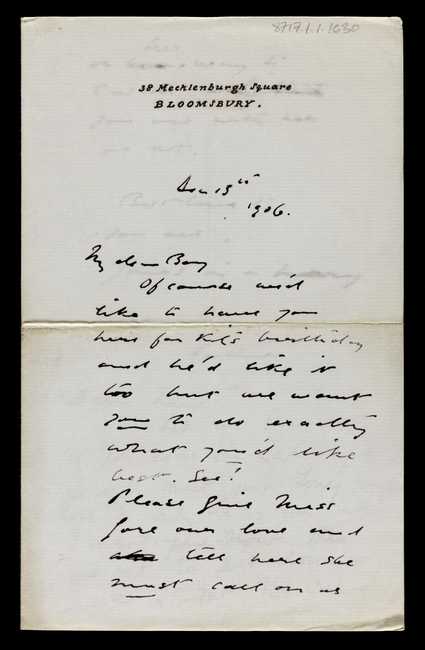 8717.1.1.1630
38 Mecklenburgh Square
BLOOMSBURY.
Dec 13th
1906.
My dear Boy
Of course we'd
like to have you
here for Kit's birthday
and he'd like it
too but we want
you to do exactly
what you'd like
best. See!
Please give Miss
Gore our love and
tell her she
must call on us